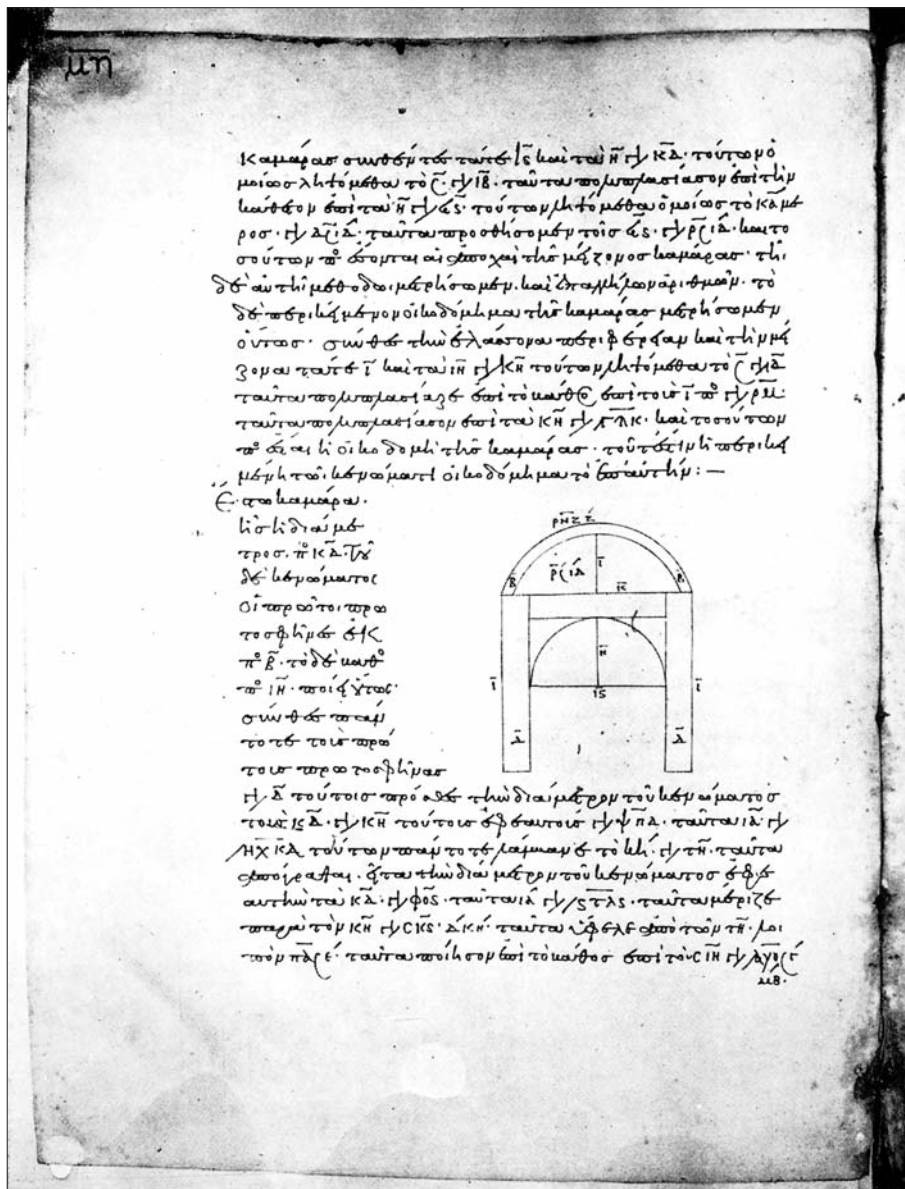 μη
καμάρας συνθέντες τά τε ις καὶ τὰ η γι κδ· τούτων ὁ
μοίως ληψόμεθα τὸ ς· γι ιβ· ταῦτα πολυπλασίασον ἐπὶ τὴν
κάθετον ἐπὶ τὰ η γι ϟς· τούτων ληψόμεθα ὁμοίως τὸ κα με
ρος· γι δ ς ιδ· ταῦτα προσθήσομεν τοῖς ϟς· γι ρ ς ιδ· καὶ το
σούτων πο ἔσονται αἱ ἀποχαὶ τῆς μείζονος καμάρας· τῆι
δὲ αὐτῆι μεθόδωι μετρήσωμεν καὶ ἐπ' ἀλλήλων ἀριθμῶν· τὸ
δὲ περικείμενον οἰκοδόμημα τῆς καμάρας μετρήσωμεν
οὕτως· σύνθες τὴν ἐλάσσονα περιφέρειαν καὶ τὴν μεί
ζονα τά τε ι καὶ τὰ ιη γι κη τούτων ληψόμεθα τὸ ς γι ιδ
ταῦτα πολυπλασίαζε ἐπὶ τὸ κάθε ἐπὶ τοὺς ι πο γι ρμ·
ταῦτα πολυπλασίασον ἐπὶ τὰ κη γι γλκ· καὶ τοσούτων
πο ἔσται ἡ οἰκοδομὴ τῆς καμάρας· τουτέστιν ἡ περικει
μένη τῶι κενώματι οἰκοδόμημα τὸ ἐπ' αὐτήν:—
Ἔστω καμάρα·
ἧς ἡ διάμε
τρος· πο κδ· τοῦ
δὲ κενώματος
οἱ πρῶτοι πρω
τοσφῆνες ἐκ
πο β· τὸ δὲ κάθο
πο ιη· ποίει οὕτως·
σύνθες πάν
τοτε τοὺς πρώ
τους πρωτοσφῆνας
ρηζ ζ
β
ρς ιδ
ι
κ
β
η
ι
ις
ι
δ
δ
γι δ τούτοις πρόσθες τὴν διάμετρον τοῦ κενώματος
τοὺς κδ· γι κη τούτους ἐφ' ἑαυτούς γι ψπδ· ταῦτα ια γι
ηχκδ τούτων πάντοτε λάμβανε τὸ κη· γι τη· ταῦτα
ἀπόγραψαι· εἶτα τὴν διάμετρον τοῦ κενώματος ἐφ' ἑ
αυτὴν τὰ κδ· γι φος· ταῦτα ια γι ςτλς· ταῦτα μέριζε
παρὰ τὸν κη γι σκς· δ κη· ταῦτα ὕφελε ἀπὸ τῶν τη· λοι
πὸν πα ς ε· ταῦτα ποίησον ἐπὶ τὸ κάθος ἐπὶ τοὺς ιη γι
μβ·